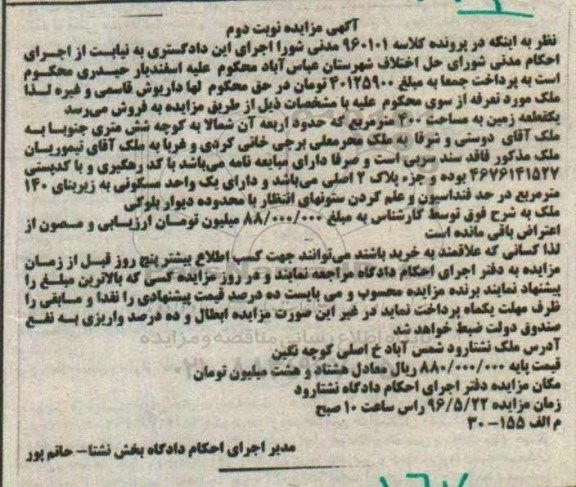 آگهی مزایده نوبت دوم
نظر به اینکه در پرونده کلاسه ۹۶۰۱۰۱ مدنی شورا اجرای این دادگستری به نیابت از اجرای
احکام مدنی شورای حل اختلاف شهرستان عباس آباد محکوم علیه اسفندیار حیدری محکوم
است به پرداخت جمعا به مبلغ ۴۰۱۲۵۹۰۰ تومان در حق محکوم لها داریوش قاسمی و غیره لذا
ملک مورد تعرفه از سوی محکوم علیه با مشخصات ذیل از طریق مزایده به فروش می رسد
یکقطعه زمین به مساحت ۴۰۰ مترمربع که حدود اربعه آن شمالا به کوچه شش متری جنوبا به
ملک آقای دوستی و شرقا به ملک محرمعلی برجی خانی کردی و غربا به ملک آقای تیموریان
ملک مذکور فاقد سند سربی است و صرفا دارای مبایعه نامه می‌باشد با کد رهگیری و با کدپستی
۴۶۷۶۱۴۱۵۲۷ بوده و جزء پلاک ۲ اصلی می‌باشد و دارای یک واحد مسکونی به زیربنای ۱۴۰
مترمربع در حد فنداسیون و علم کردن ستونهای انتظار با محدوده دیوار بلوکی
ملک به شرح فوق توسط کارشناس به مبلغ ۸۸/۰۰۰/۰۰۰ میلیون تومان ارزیابی و مصون از
اعتراض باقی مانده است
لذا کسانی که علاقمند به خرید باشند می‌توانند جهت کسب اطلاع بیشتر پنج روز قبل از زمان
مزایده به دفتر اجرای احکام دادگاه مراجعه نمایند و در روز مزایده کسی که بالاترین مبلغ را
پیشنهاد نمایند برنده مزایده محسوب و می بایست ده درصد قیمت پیشنهادی را نقدا و مابقی را
ظرف مهلت یکماه پرداخت نماید در غیر این صورت مزایده ابطال و ده درصد واریزی به نفع
صندوق دولت ضبط خواهد شد
آدرس ملک نشتارود شمس آباد خ اصلی کوچه نگین
قیمت پایه ۸۸۰/۰۰۰/۰۰۰ ریال معادل هشتاد و هشت میلیون تومان
مکان مزایده دفتر اجرای احکام دادگاه نشتارود
زمان مزایده ۹۶/۵/۲۲ راس ساعت ۱۰ صبح
م الف ۱۵۵-۳۰
مدیر اجرای احکام دادگاه بخش نشتا- حاتم پور